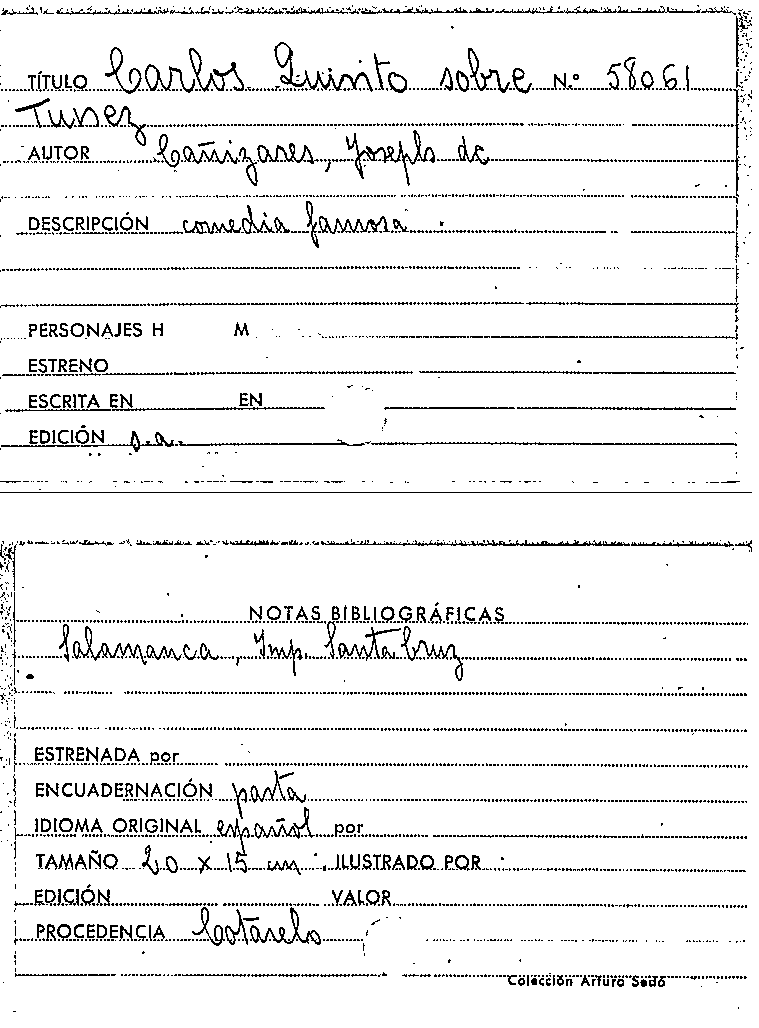 TÍTULO Carlos Quinto sobre N.º 58061
Tunez
AUTOR Cañizares, Joseph de
DESCRIPCIÓN comedia famosa
PERSONAJES H M
ESTRENO
ESCRITA EN EN
EDICIÓN s.a.
NOTAS BIBLIOGRÁFICAS
Salamanca, Imp. Santa Cruz
ESTRENADA por
ENCUADERNACIÓN pasta
IDIOMA ORIGINAL español por
TAMAÑO 20 x 15 cm. ILUSTRADO POR
EDICIÓN VALOR
PROCEDENCIA Cotarelo
Colección Arturo Sedó